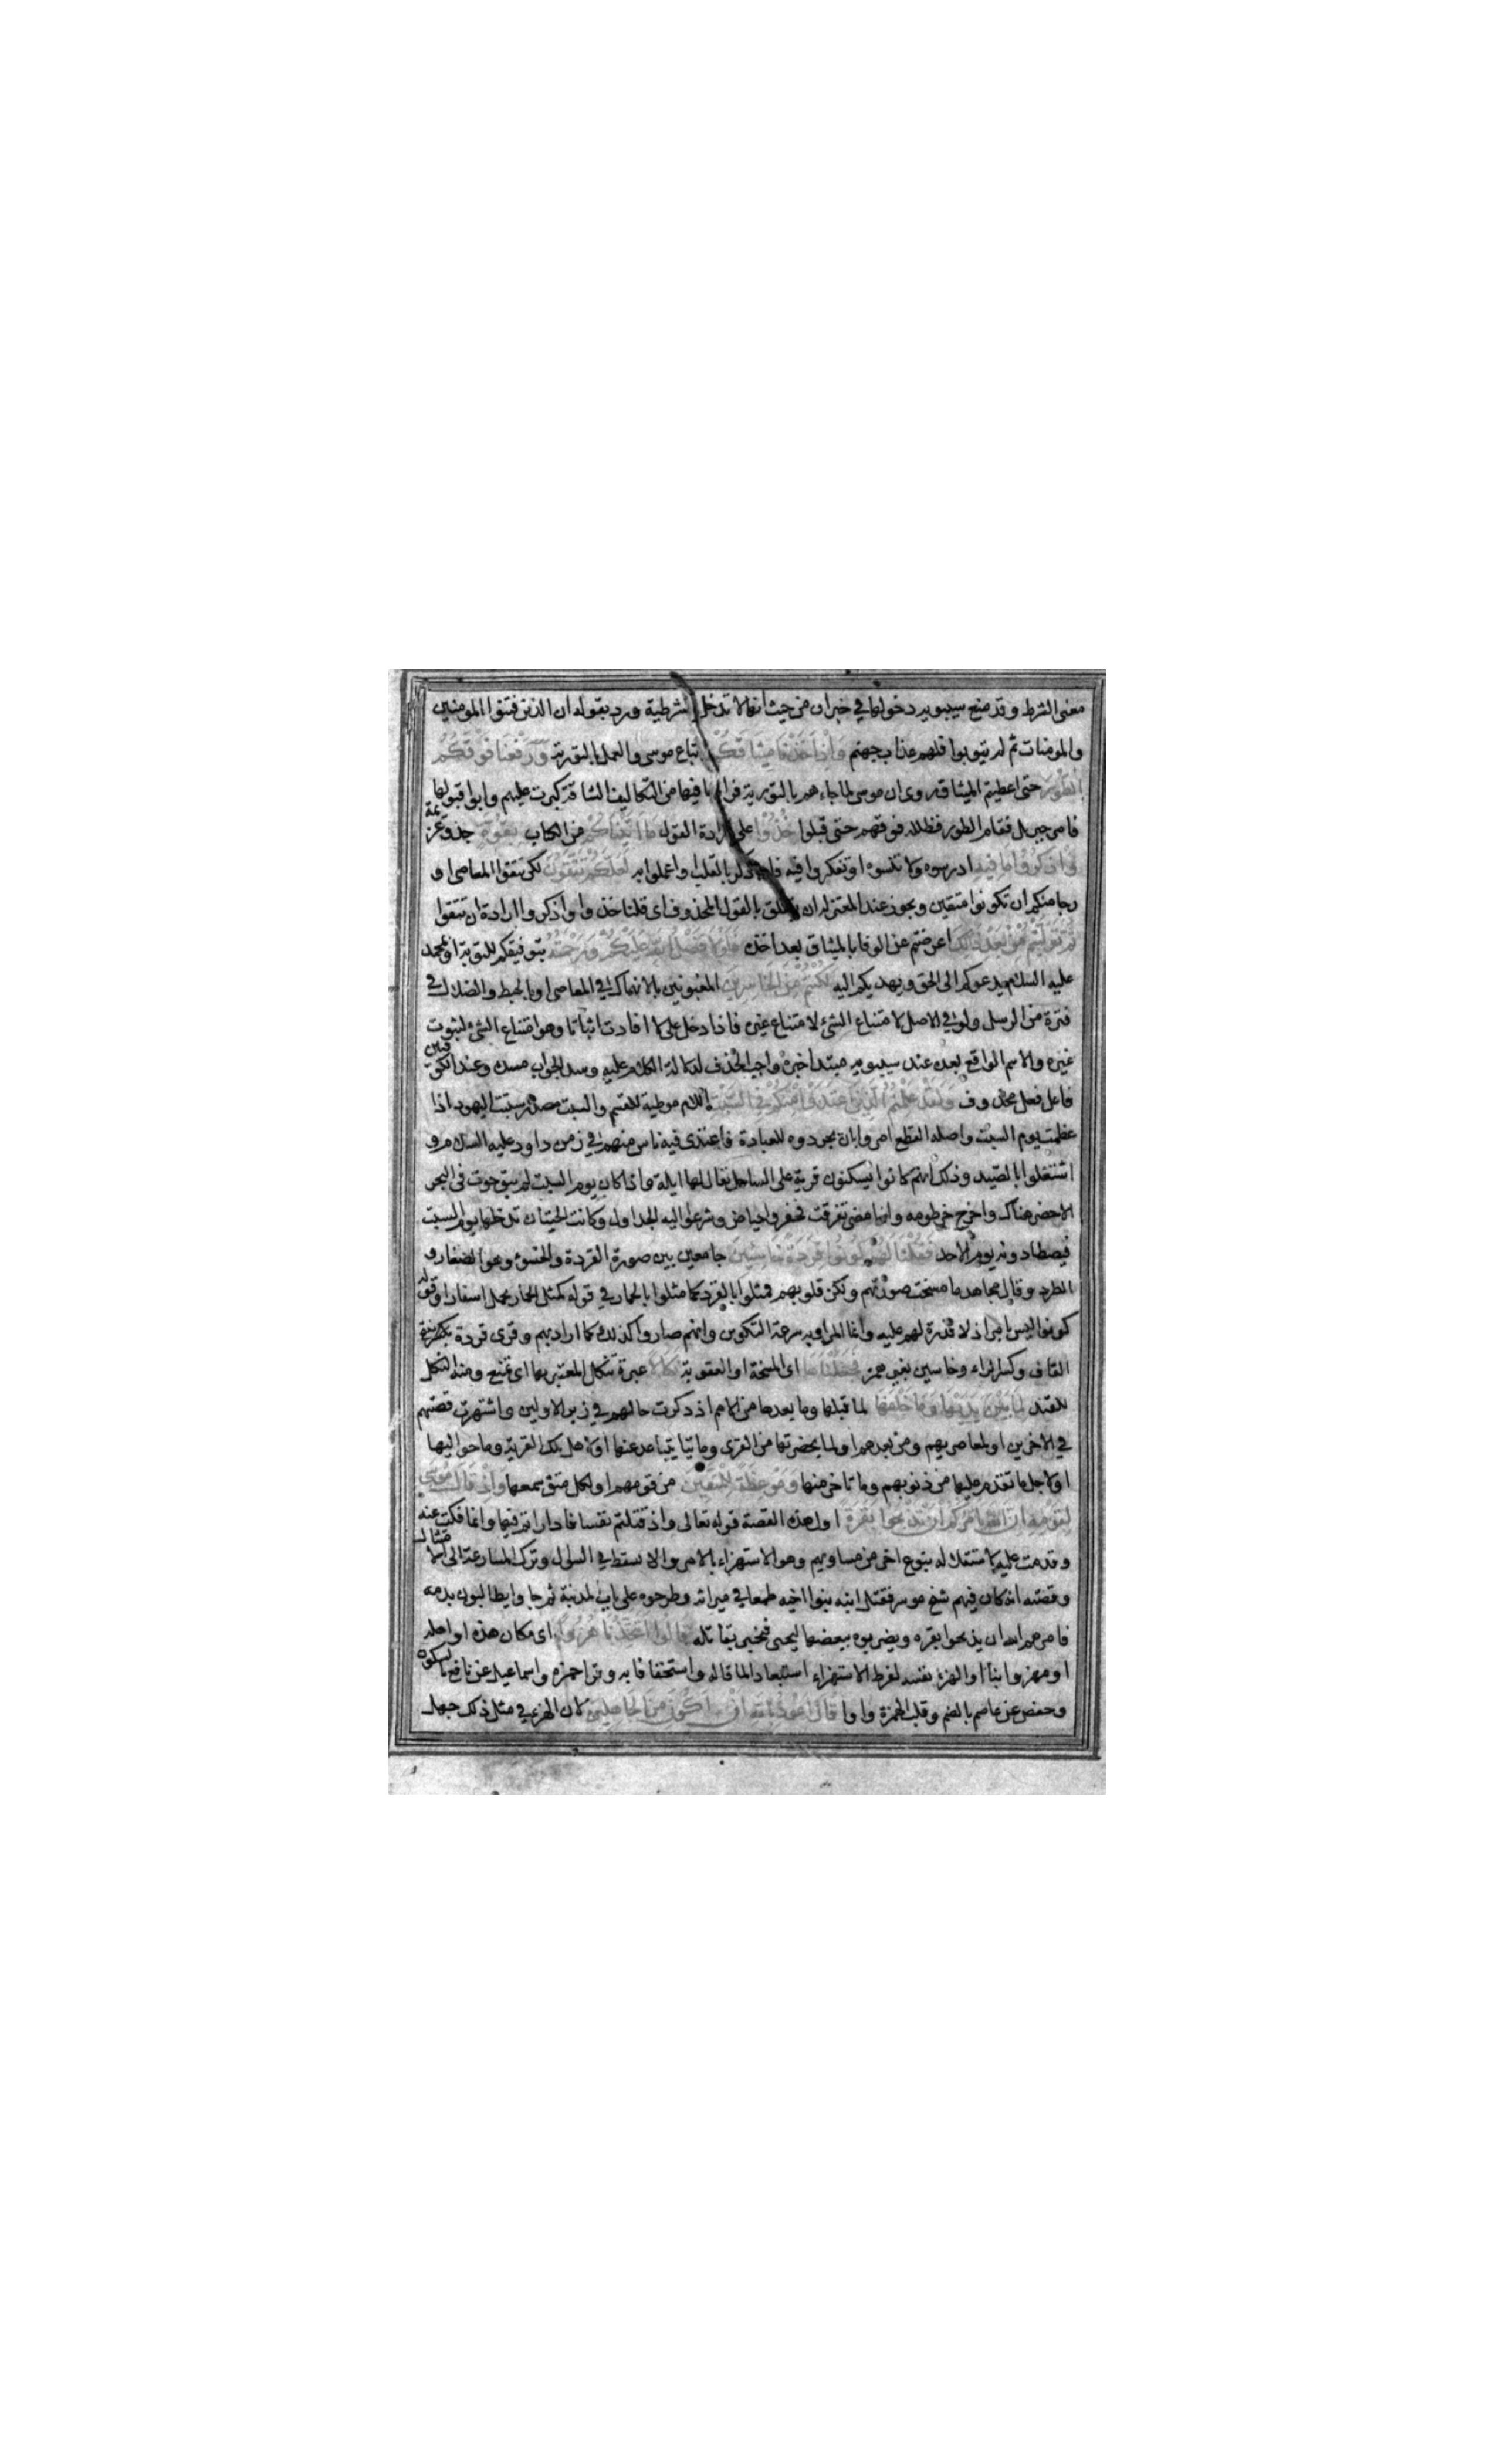 معنى الشرط وقد منع سيبويه دخولها في خبر ان من حيث انها لا تدخل الشرطية ورد بقوله ان الذين فتنوا المومنين
والمومنات ثم لم يتوبوا فلهم عذاب جهنم وَاِذْ اَخَذْنَا مِيثَاقَكُمْ باتباع موسى والعمل بالتورية وَرَفَعْنَا فَوْقَكُمُ
الطُّورَ حتى اعطيتم الميثاق روى ان موسى لما جاءهم بالتورية فراوا ما فيها من التكاليف الشاقة كبرت عليهم وابوا قبولها
فامر جبريل فقلع الطور فظلله فوقهم حتى قبلوا خُذُوا على ارادة القول مَا اٰتَيْنَاكُمْ من الكتاب بِقُوَّةٍ بجد وعزيمة
وَاذْكُرُوا مَا فِيهِ ادرسوه ولا تنسوه او تفكروا فيه فانه ذكر بالقلب او اعملوا به لَعَلَّكُمْ تَتَّقُونَ لكى تتقوا المعاصى او
رجا منكم ان تكونوا متقين ويجوز عند المعتزلة ان يتعلق بالقول المحذوف اى قلنا خذوا واذكروا ارادة ان تتقوا
ثُمَّ تَوَلَّيْتُمْ مِنْ بَعْدِ ذٰلِكَ اعرضتم عن الوفا بالميثاق بعد اخذه فَلَوْلَا فَضْلُ اللهِ عَلَيْكُمْ وَرَحْمَتُهُ بتوفيقكم للتوبة او بمحمد
عليه السلام يدعوكم الى الحق ويهديكم اليه لَكُنْتُمْ مِنَ الْخَاسِرِينَ المغبونين بالانهماك في المعاصى او بالخبط والضلال في
فترة من الرسل ولو في الاصل لامتناع الشئ لامتناع غيره فاذا دخل على لا افادت اثباتا وهو امتناع الشئ لثبوت
غيره والاسم الواقع بعده عند سيبويه مبتدا خبره واجب الحذف لدلالة الكلام عليه وسد الجواب مسده وعند الكوفيين
فاعل فعل محذوف وَلَقَدْ عَلِمْتُمُ الَّذِينَ اعْتَدَوْا مِنْكُمْ فِي السَّبْتِ اللام موطية للقسم والسبت مصدر سبتت اليهود اذا
عظمت يوم السبت واصله القطع امروا بان يجردوه للعبادة فاعتدى فيه ناس منهم في زمن داود عليه السلام و
اشتغلوا بالصيد وذلك انهم كانوا يسكنون قرية على الساحل يقال لها ايلة واذا كان يوم السبت لم يبق حوت في البحر
الا حضر هناك واخرج خرطومه واذا مضى تفرقت فحفروا حياض وشرعوا اليه الجداول وكانت الحيتان تدخلها يوم السبت
فيصطادونه يوم الاحد فَقُلْنَا لَهُمْ كُونُوا قِرَدَةً خَاسِئِينَ جامعين بين صورة القردة والخسوء وهو الصغار و
الطرد وقال مجاهد ما مسخت صورتهم ولكن قلوبهم فمثلوا بالقرد كما مثلوا بالحمار في قوله كمثل الحمار يحمل اسفارا وقوله
كونوا ليس بامر اذ لا قدرة لهم عليه وانما المراد به سرعة التكوين وانهم صاروا كذلك كما اراد بهم وقرى قردة بفتح
القاف وكسر الراء وخاسين بغير همز فَجَعَلْنَاهَا اى المسخة او العقوبة نَكَالًا عبرة تنكل المعتبر بها اى تمنع ومنه النكل
للقيد لِمَا بَيْنَ يَدَيْهَا وَمَا خَلْفَهَا لما قبلها وما بعدها من الامم اذ ذكرت حالهم في زبر الاولين واشتهرت قصتهم
في الاخرين او لمعاصريهم ومن بعدهم او لما بحضرتها من القرى وما يتباعد عنها او لاهل تلك القرية وما حواليها
او لاجل ما تقدم عليها من ذنوبهم وما تاخر منها وَمَوْعِظَةً لِلْمُتَّقِينَ من قومهم او لكل متق سمعها وَاِذْ قَالَ مُوسٰى
لِقَوْمِهِ اِنَّ اللهَ يَاْمُرُكُمْ اَنْ تَذْبَحُوا بَقَرَةً اول هذه القصة قوله تعالى واذ قتلتم نفسا فاداراتم فيها وانما فكت عنه
وقدمت عليه لاستقلاله بنوع اخر من مساويهم وهو الاستهزاء بالامر والاستقصا في السؤال وترك المسارعة الى الامتثال
وقصته انه كان فيهم شيخ موسر فقتل ابنه بنوا اخيه طمعا في ميراثه وطرحوه على باب المدينة ثم جاوا يطالبون بدمه
فامرهم الله ان يذبحوا بقرة ويضربوه ببعضها ليحيى فيخبر بقاتله قَالُوا اَتَتَّخِذُنَا هُزُوًا اى مكان هذه او اهله
او مهزوا بنا او الهزء نفسه لفرط الاستهزاء استبعادا لما قاله واستخفافا به وقرا حمزة واسماعيل عن نافع بالسكون
وحفص عن عاصم بالضم وقلب الهمزة واوا قَالَ اَعُوذُ بِاللهِ اَنْ اَكُونَ مِنَ الْجَاهِلِينَ لان الهزء في مثل ذلك جهل